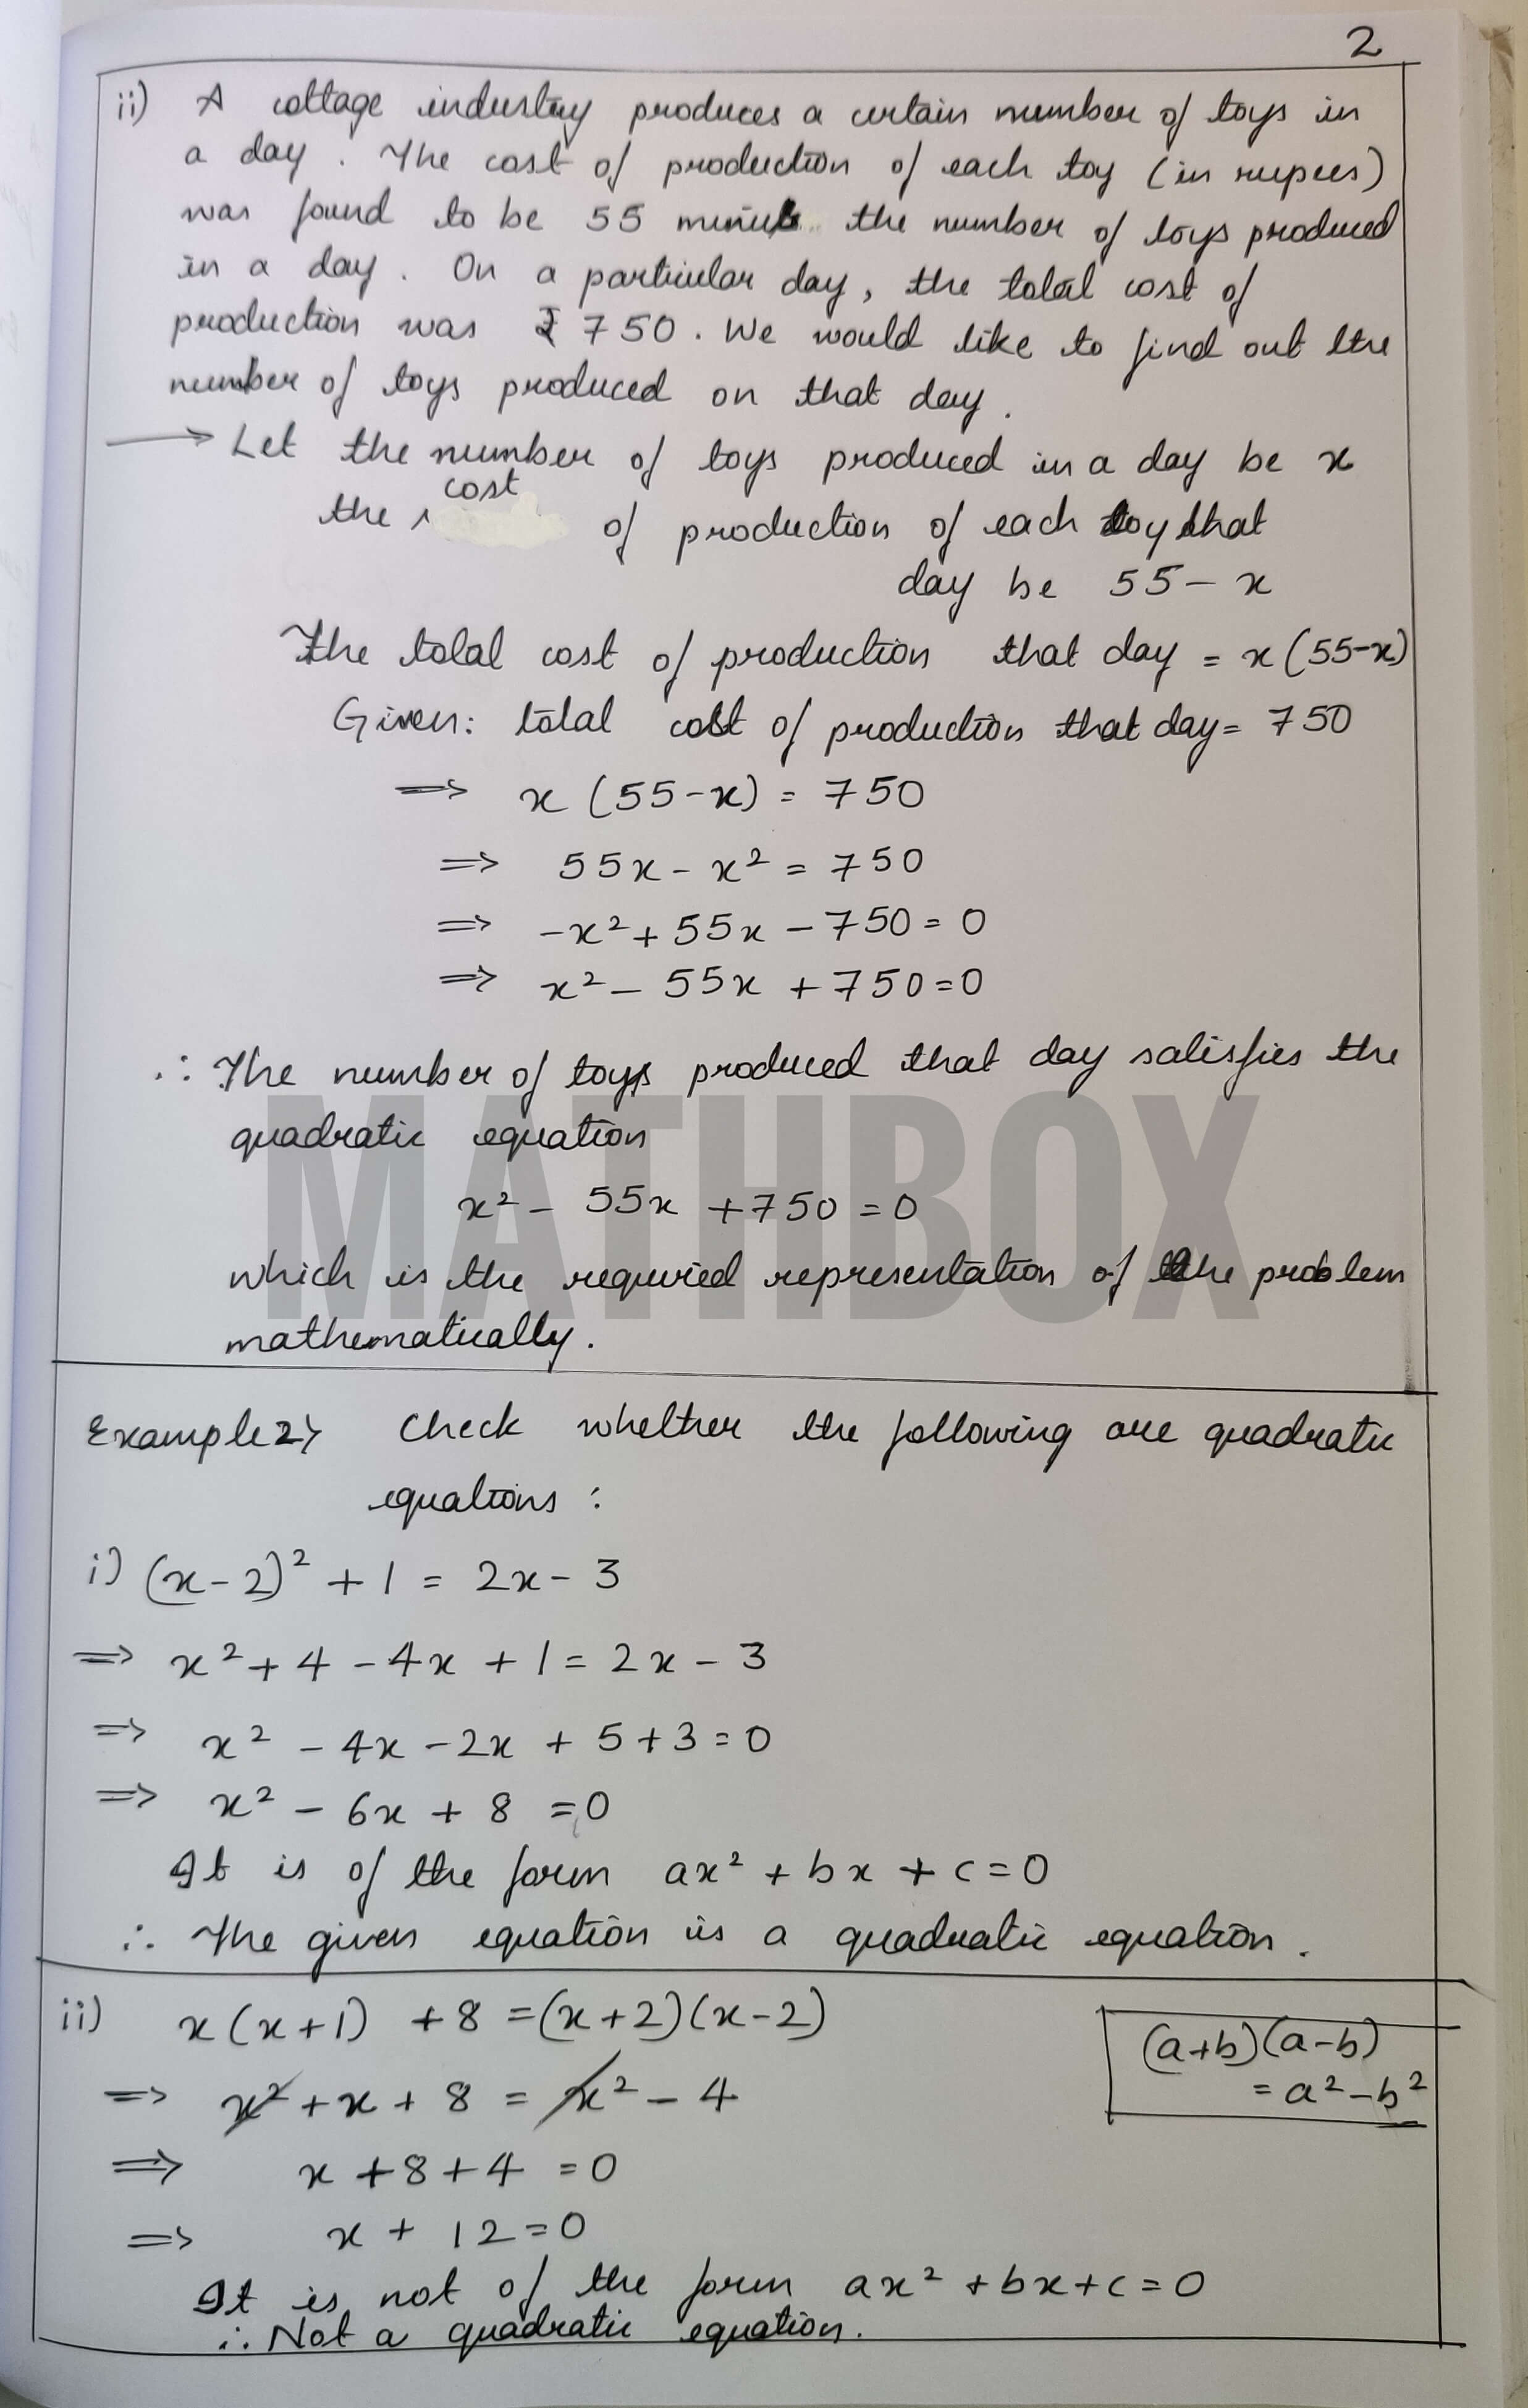 2
ii) A cottage industry produces a certain number of toys in
a day. The cost of production of each toy (in rupees)
was found to be 55 minus the number of toys produced
in a day. On a particular day, the total cost of
production was ₹ 750. We would like to find out the
number of toys produced on that day.
→ Let the number of toys produced in a day be x
the cost of production of each toy that
day be 55 - x
The total cost of production that day = x(55-x)
Given: total cost of production that day = 750
⇒ x (55-x) = 750
⇒ 55x - x² = 750
⇒ -x² + 55x - 750 = 0
⇒ x² - 55x + 750 = 0
∴ The number of toys produced that day satisfies the
quadratic equation
x² - 55x + 750 = 0
which is the required representation of the problem
mathematically.
MATHBOX
Example 2) Check whether the following are quadratic
equations :
i) (x-2)² + 1 = 2x - 3
⇒ x² + 4 - 4x + 1 = 2x - 3
⇒ x² - 4x - 2x + 5 + 3 = 0
⇒ x² - 6x + 8 = 0
It is of the form ax² + bx + c = 0
∴ The given equation is a quadratic equation.
ii) x(x+1) + 8 = (x+2)(x-2)
(a+b)(a-b)
= a² - b²
⇒ x² + x + 8 = x² - 4
⇒ x + 8 + 4 = 0
⇒ x + 12 = 0
It is not of the form ax² + bx + c = 0
∴ Not a quadratic equation.